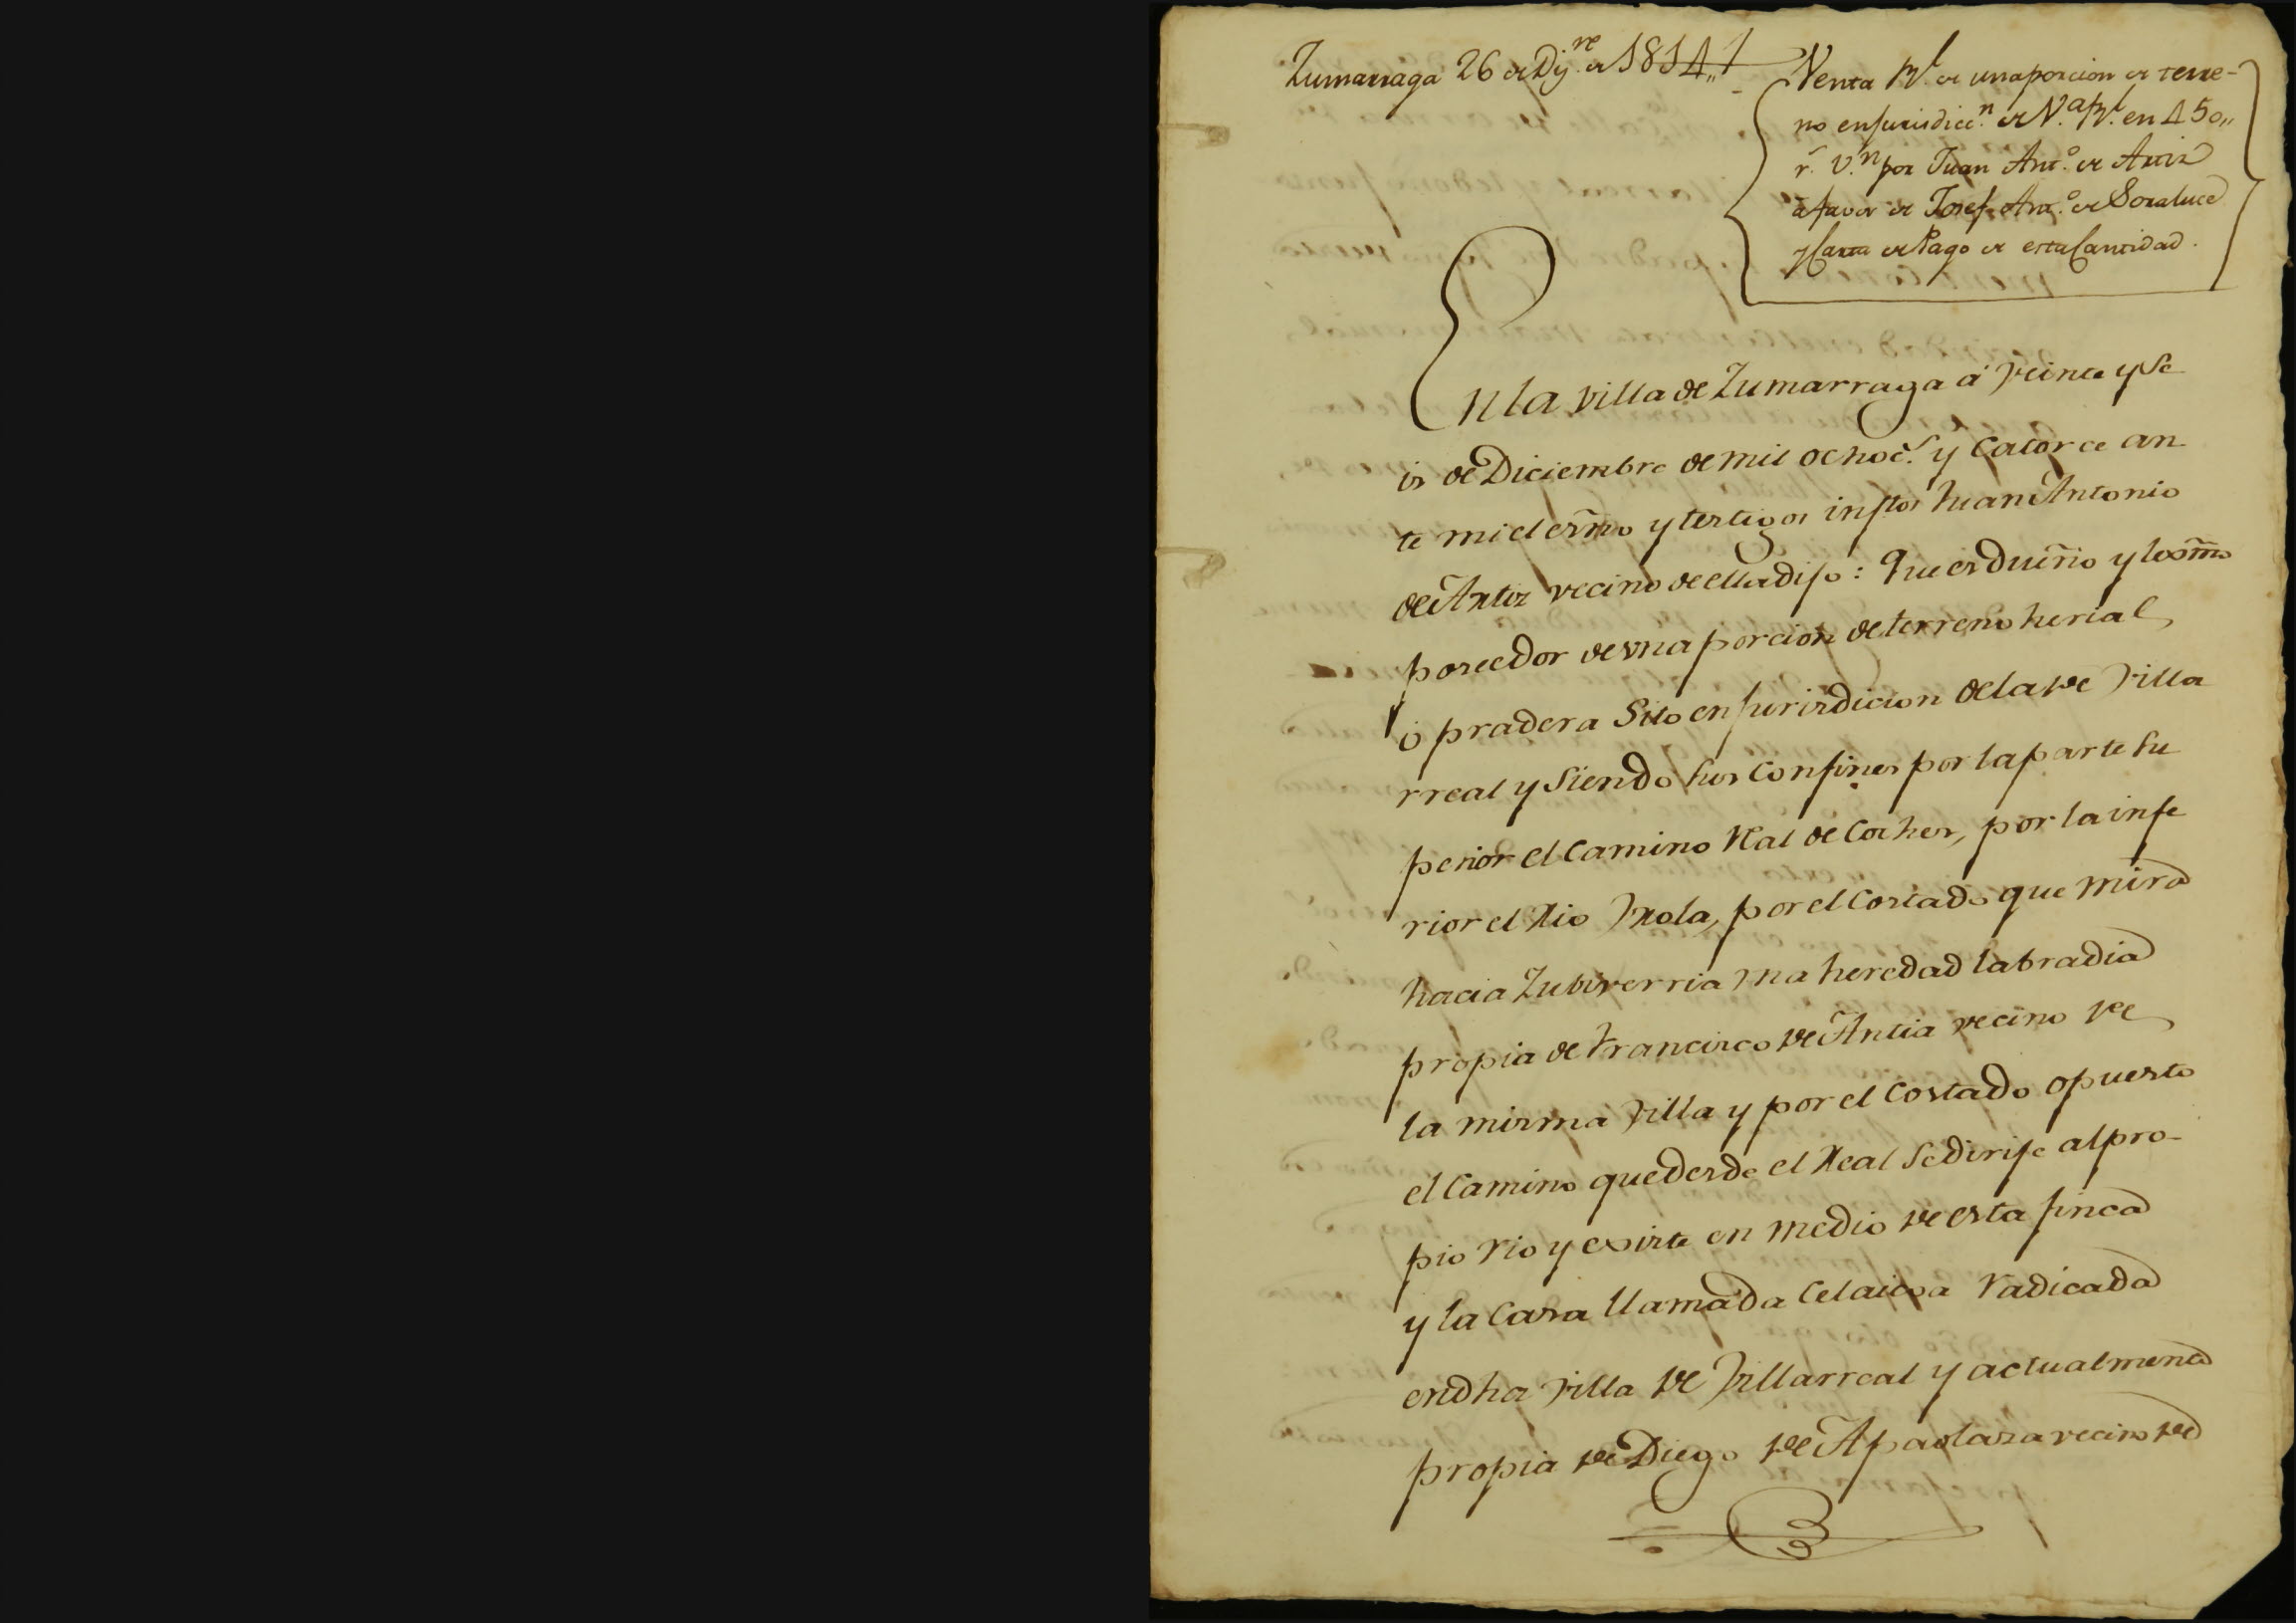 Zumarraga 26 de Dij.re de 1814,,
Venta Rl. de una porcion de terre-
no en jurisdicc.n de V.a Rl. en 450,,
r.s v.n por Juan Ant.o de Antiz
á favor de Josef Ant.o de Soraluce
y Carta de Pago de esta Cantidad.
En la villa de Zumarraga á veinte y se
is de Diciembre de mil ochoc.s y Catorce an
te mi el esño y testigos inftos Juan Antonio
de Antiz vecino de ella dijo: Que es dueño y lexmo
poseedor de vna porcion de terreno herial,
ó pradera Sito en jurisdicion de la de villa
rreal y Siendo sus Confines por la parte su
perior el Camino Real de Coches, por la infe
rior el Rio Vrola, por el Costado que mira
hacia Zubiverria vna heredad labradia
propia de Francisco de Antia vecino de
la misma villa y por el Costado opuesto
el Camino que desde el Real Se dirije al pro-
pio rio y existe en medio de esta finca
y la Casa llamada Celaicoa radicada
en dha villa de Villarreal y actualmente
propia de Diego de Apaolaza vecino de